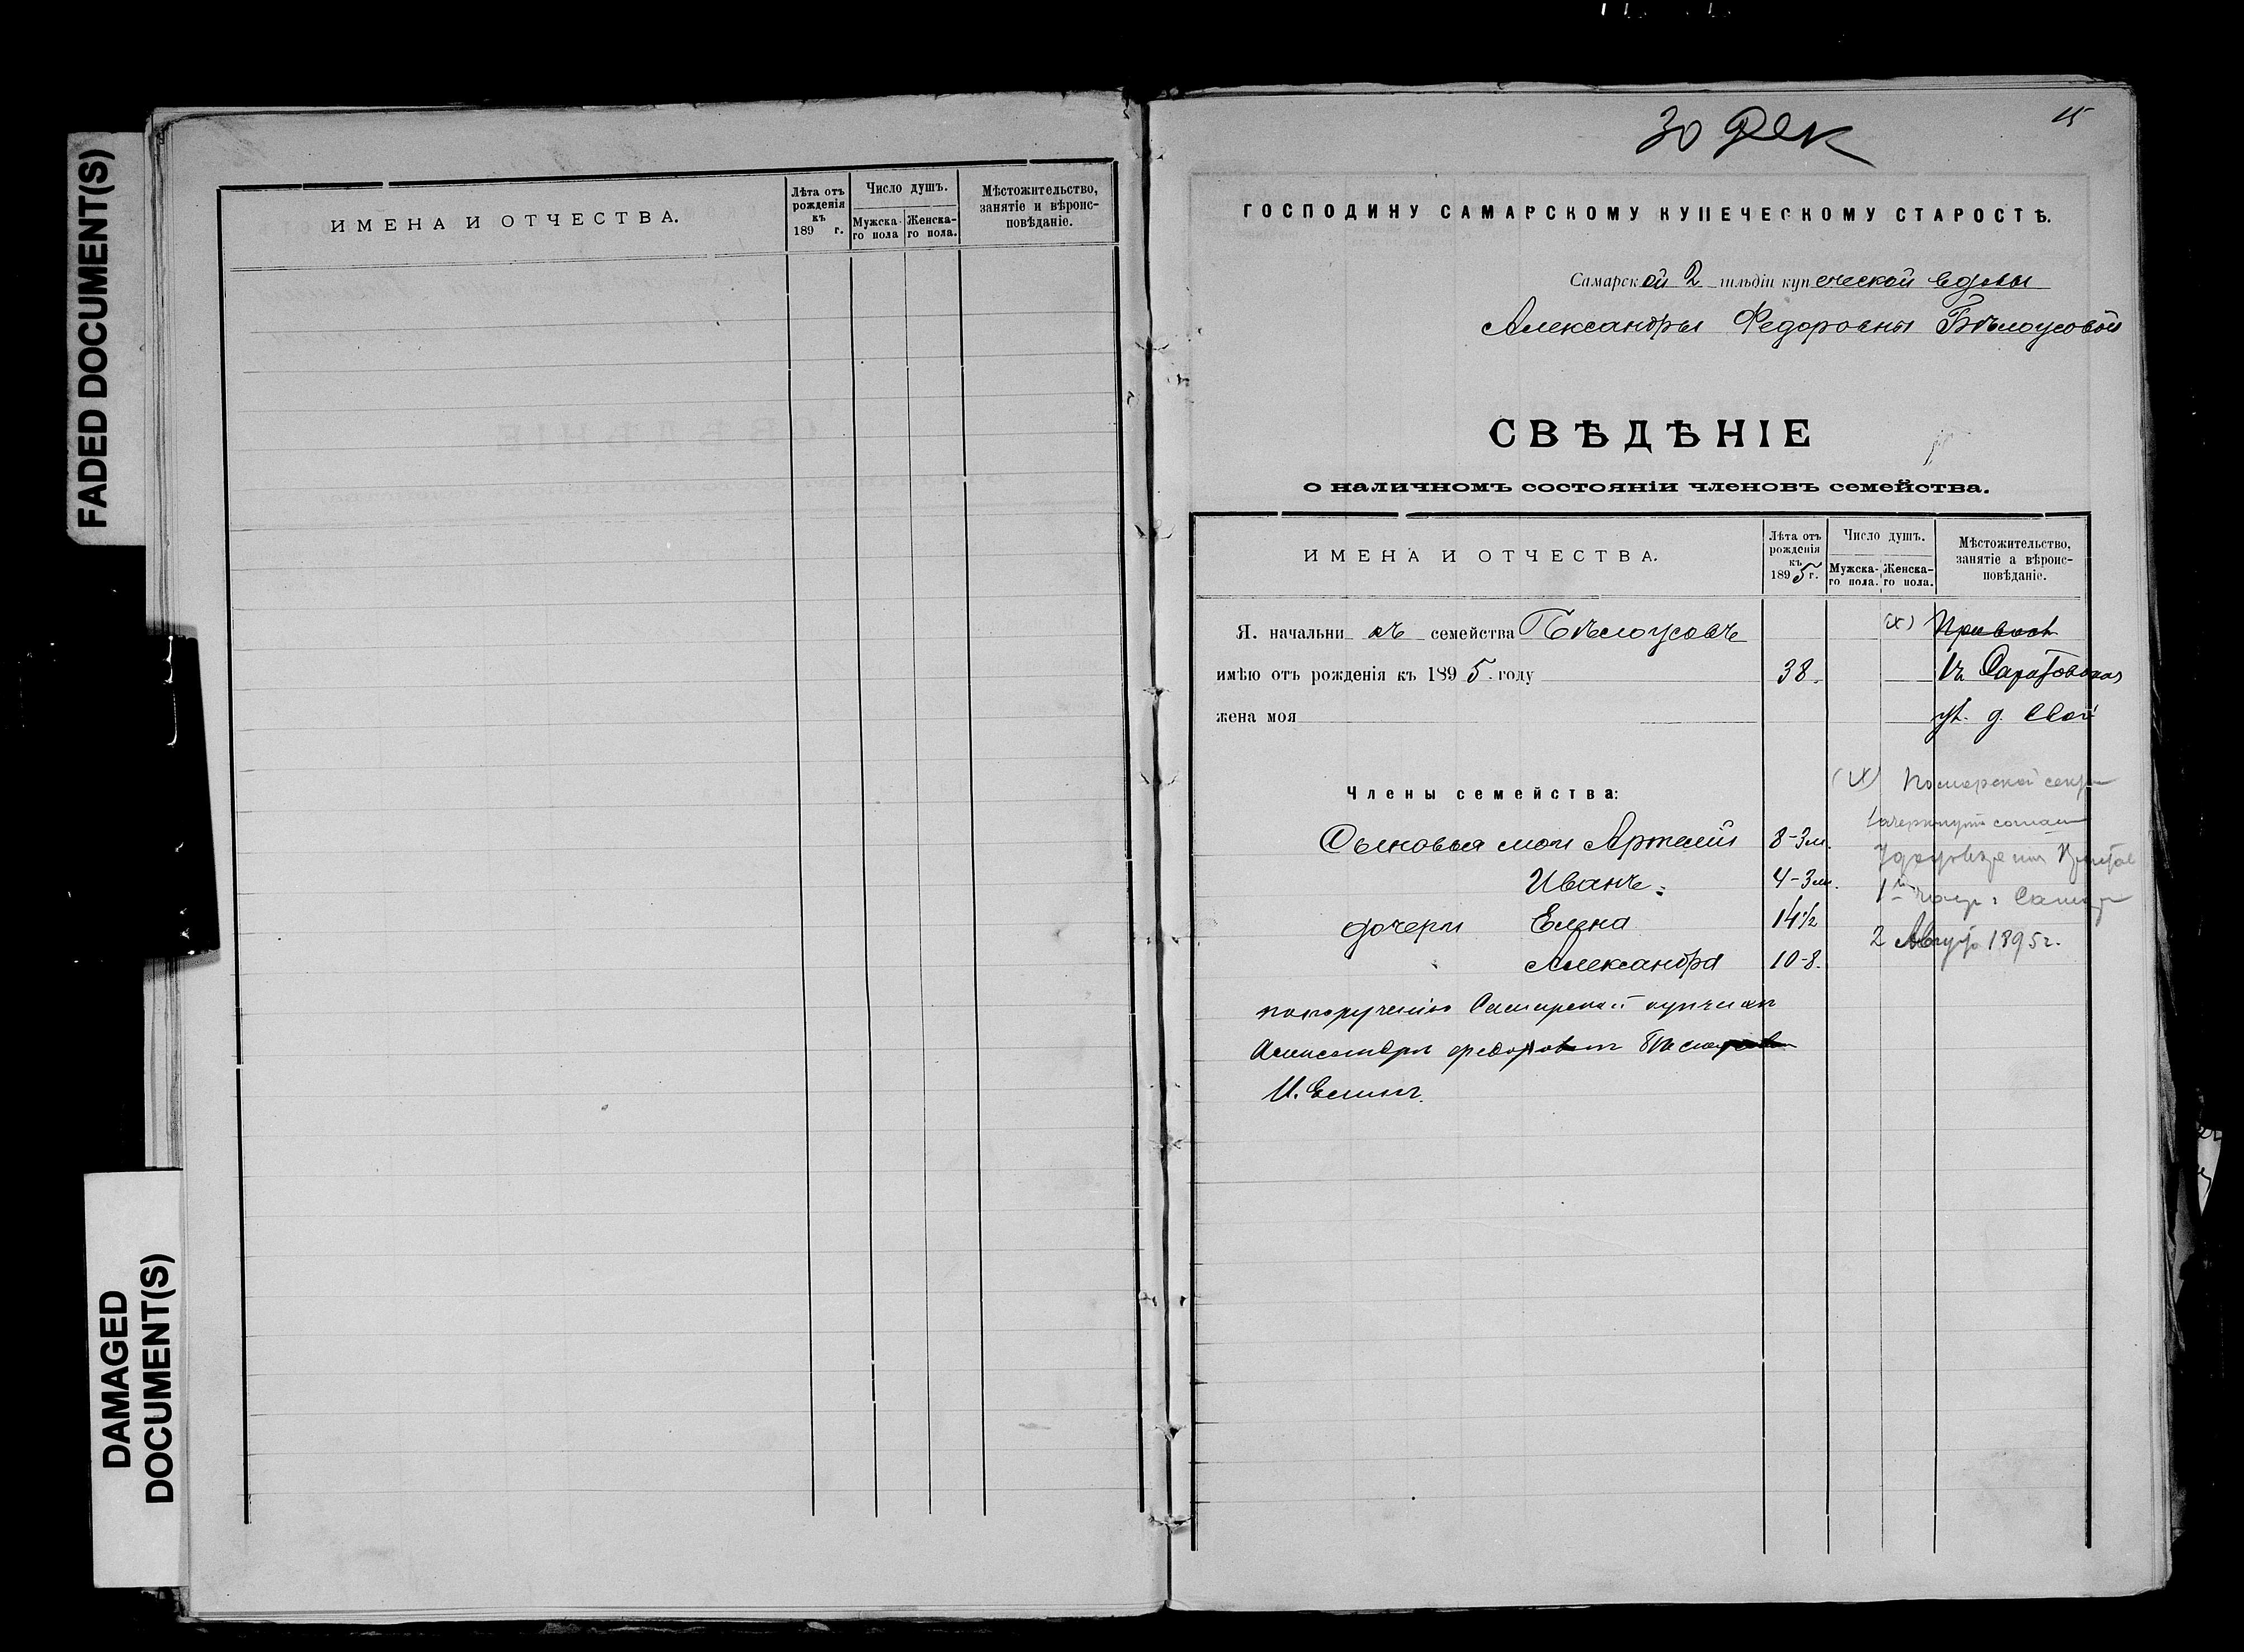 FADED DOCUMENT(S)
DAMAGED
DOCUMENT(S)
ИМЕНА И ОТЧЕСТВА.
Лѣта отъ
рожденія
къ
189 г.
Число душъ.
Мужска-
го пола
Женска-
го пола.
Мѣстожительство,
занятіе и вѣроис-
повѣданіе.
30 Дек
15
ГОСПОДИНУ САМАРСКОМУ КУПЕЧЕСКОМУ СТАРОСТѢ.
Самарской 2 гильдіи купеческой вдовы
Александры Федоровны Бѣлоусовой
СВѢДѢНІЕ
о наличномъ состояніи членовъ семейства.
ИМЕНА И ОТЧЕСТВА.
Лѣта отъ
рожденія
къ
1895 г.
Число душъ.
Мужска-
го пола.
Женска-
го пола.
Мѣстожительство,
занятіе а вѣроис-
повѣданіе.
Я. начальни къ семейства Бѣлоусовъ (х)
имѣю отъ рожденія къ 1895. году 38. Саратовская
жена моя ул. д. свой
Члены семейства:
(х) Поморской
Сыновья мои Артемій 8-3м.
Иванъ 4-3м.
дочери Елена 14½
Александра 10-8.
1й
2 Августа 1895 г.
по порученію Самарской купчихи
Александры Федоровны Бѣлоусовой